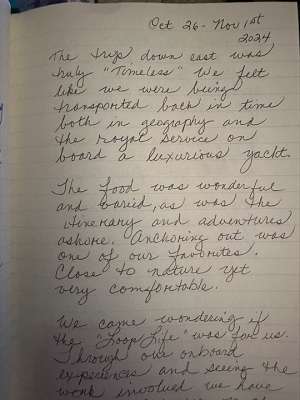 Oct 26 - Nov 1st
2024
The trip down east was
truly "Timeless" We felt
like we were being
transported back in time
both in geography and
the royal service on
board a luxurious yacht.
The food was wonderful
and varied, as was the
itinerary and adventures
ashore. Anchoring out was
one of our favorites.
Close to nature yet
very comfortable.
We came wondering if
the "Loop Life" was for us.
Through our onboard
experiences and seeing the
work involved we have